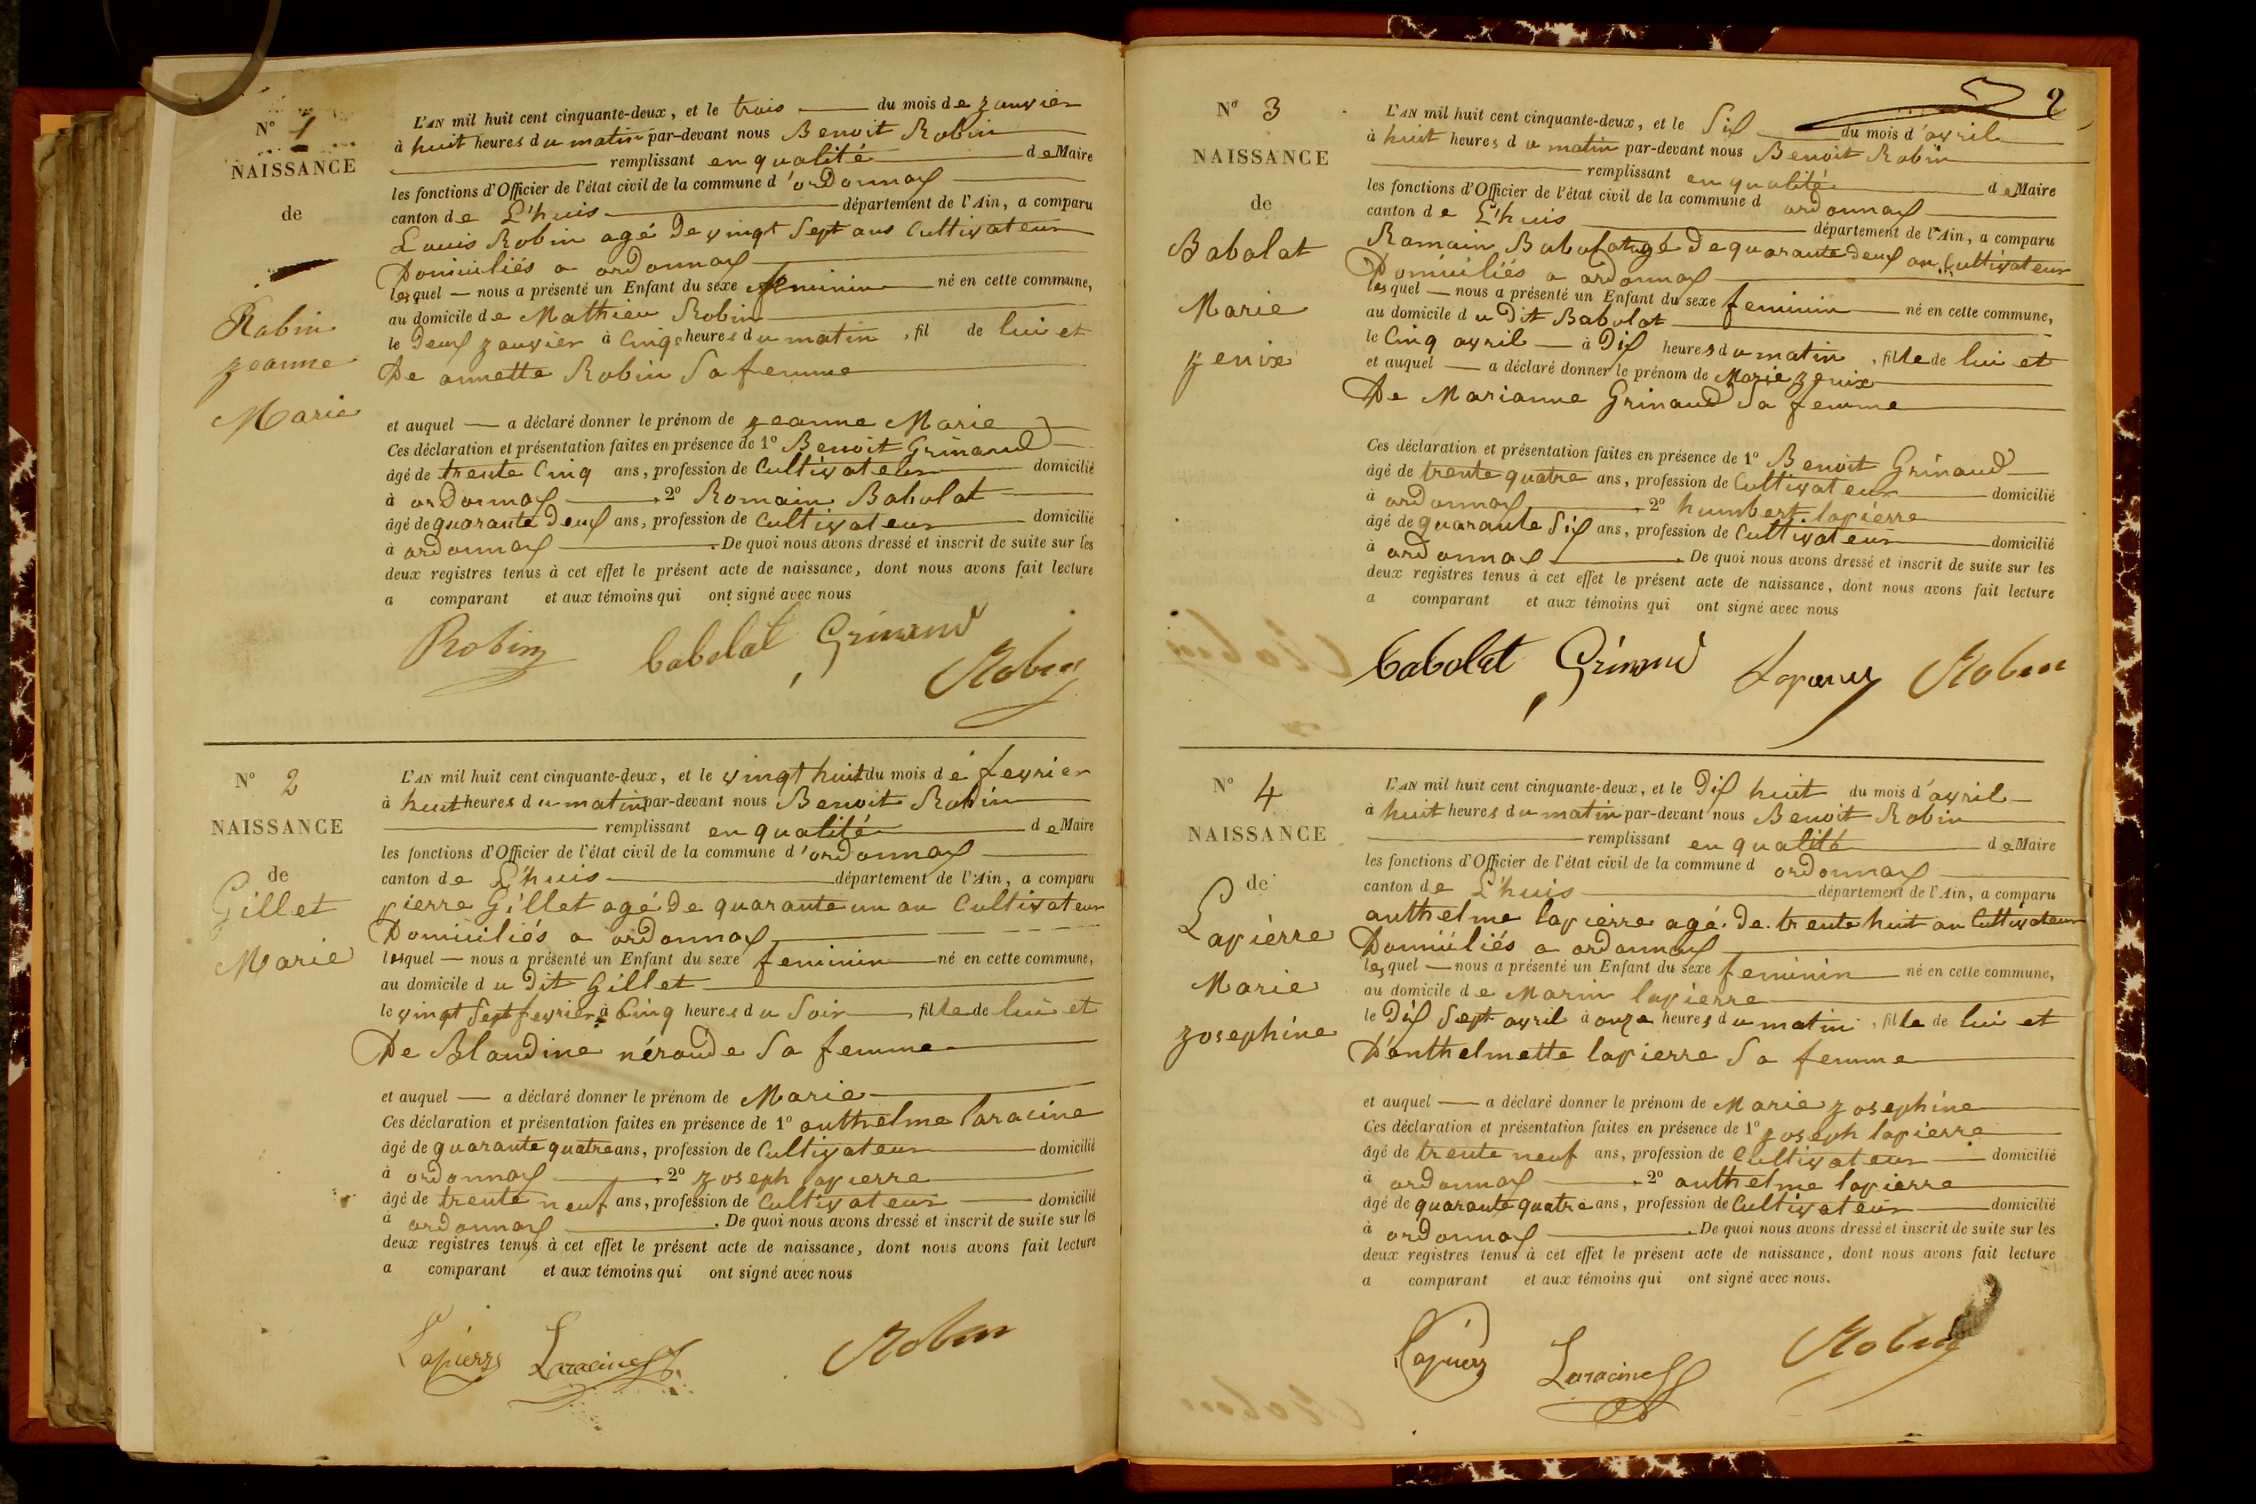 N° 1
NAISSANCE
de
Robin
Jeanne
Marie
L'AN mil huit cent cinquante-deux, et le trois du mois de Janvier
à huit heures du matin par-devant nous Benoit Robin
remplissant en qualité de Maire
les fonctions d'Officier de l'état civil de la commune d'ordonnax
canton de L'huis département de l'Ain, a comparu
Louis Robin agé de vingt sept ans Cultivateur
Domiciliés a ordonnax
lesquel nous a présenté un Enfant du sexe feminin né en cette commune,
au domicile de Mathieu Robin
le deux Janvier à Cinq heures du matin, fil de lui et
De annette Robin Sa femme
et auquel a déclaré donner le prénom de Jeanne Marie
Ces déclaration et présentation faites en présence de 1° Benoit Grinand
âgé de trente Cinq ans, profession de Cultivateur domicilié
à ordonnax . 2° Romain Babolat
âgé de quarante deux ans, profession de Cultivateur domicilié
à ordonnax . De quoi nous avons dressé et inscrit de suite sur les
deux registres tenus à cet effet le présent acte de naissance, dont nous avons fait lecture
a comparant et aux témoins qui ont signé avec nous
Robin babolat Grinand Robin
N° 2
NAISSANCE
de
Gillet
Marie
L'AN mil huit cent cinquante-deux, et le vingt huit du mois de fevrier
à huit heures du matin par-devant nous Benoit Robin
remplissant en qualité de Maire
les fonctions d'Officier de l'état civil de la commune d'ordonnax
canton de L'huis département de l'Ain, a comparu
pierre Gillet agé de quarante un an Cultivateur
Domiciliés a ordonnax
lesquel nous a présenté un Enfant du sexe feminin né en cette commune,
au domicile du Dit Gillet
le vingt Sept fevrier à Cinq heures du Soir fille de lui et
De Blandine néraude Sa femme
et auquel a déclaré donner le prénom de Marie
Ces déclaration et présentation faites en présence de 1° anthelme laracine
âgé de quarante quatre ans, profession de Cultivateur domicilié
à ordonnax . 2° Joseph lapierre
âgé de trente neuf ans, profession de Cultivateur domicilié
à ordonnax . De quoi nous avons dressé et inscrit de suite sur les
deux registres tenus à cet effet le présent acte de naissance, dont nous avons fait lecture
a comparant et aux témoins qui ont signé avec nous
Lapierre Laracine Robin
2
N° 3
NAISSANCE
de
Babolat
Marie
Jenie
L'AN mil huit cent cinquante-deux, et le Six du mois d'avril
à huit heures du matin par-devant nous Benoit Robin
remplissant en qualité de Maire
les fonctions d'Officier de l'état civil de la commune d ordonnax
canton de L'huis département de l'Ain, a comparu
Romain Babolat agé de quarante deux an Cultivateur
Domiciliés a ordonnax
lesquel nous a présenté un Enfant du sexe feminin né en cette commune,
au domicile du Dit Babolat
le Cinq avril à Dix heures du matin, fille de lui et
et auquel a déclaré donner le prénom de Marie Jenie
De Marianne Grinand Sa femme
Ces déclaration et présentation faites en présence de 1° Benoit Grinand
âgé de trente quatre ans, profession de Cultivateur domicilié
à ordonnax . 2° humbert lapierre
âgé de quarante Six ans, profession de Cultivateur domicilié
à ordonnax . De quoi nous avons dressé et inscrit de suite sur les
deux registres tenus à cet effet le présent acte de naissance, dont nous avons fait lecture
a comparant et aux témoins qui ont signé avec nous
babolat Grinand Lapierre Robin
N° 4
NAISSANCE
de
Lapierre
Marie
Josephine
L'AN mil huit cent cinquante-deux, et le Dix huit du mois d'avril
à huit heures du matin par-devant nous Benoit Robin
remplissant en qualité de Maire
les fonctions d'Officier de l'état civil de la commune d ordonnax
canton de L'huis département de l'Ain, a comparu
anthelme lapierre agé de trente huit an Cultivateur
Domiciliés a ordonnax
lesquel nous a présenté un Enfant du sexe feminin né en cette commune,
au domicile de Marin lapierre
le Dix Sept avril à onze heures du matin, fille de lui et
D'anthelmette lapierre Sa femme
et auquel a déclaré donner le prénom de Marie Josephine
Ces déclaration et présentation faites en présence de 1° Joseph lapierre
âgé de trente neuf ans, profession de Cultivateur domicilié
à ordonnax . 2° anthelme lapierre
âgé de quarante quatre ans, profession de Cultivateur domicilié
à ordonnax . De quoi nous avons dressé et inscrit de suite sur les
deux registres tenus à cet effet le présent acte de naissance, dont nous avons fait lecture
a comparant et aux témoins qui ont signé avec nous.
Lapierre Laracine Robin